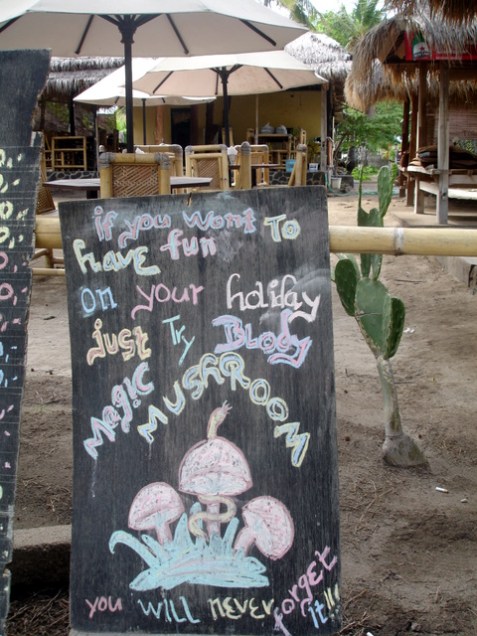 if you want TO
have fun
on your holiday
just Try Bloody
Magic
MUSHROOM
you will never forget
it!!!